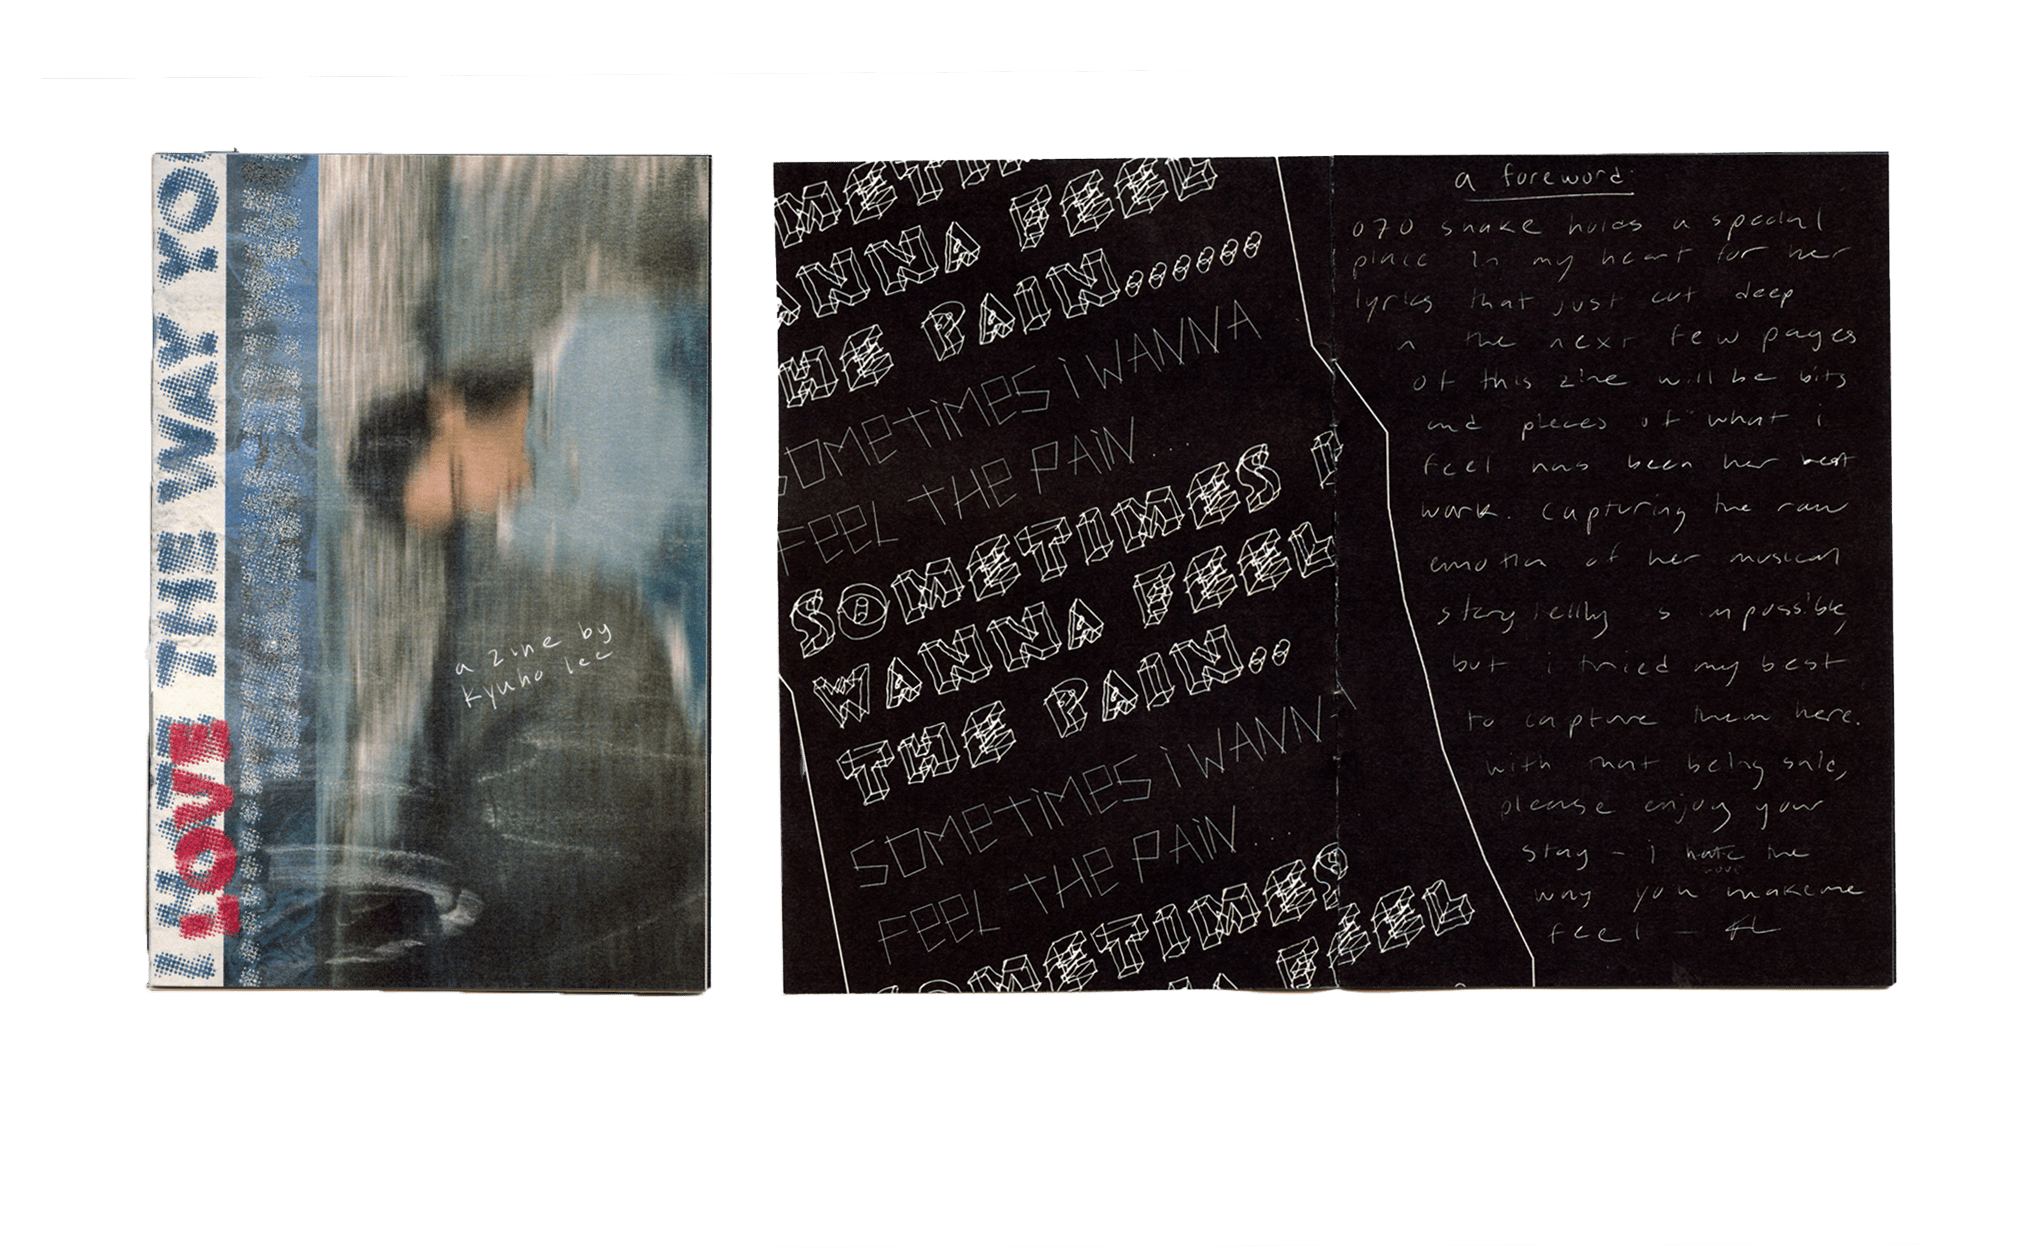 I HATE THE WAY YOU
LOVE
a zine by
kyuho lee
OMETIM
ANNA FEEL
HE PAIN......
SOMETIMES i WANNA
FEEL THE PAiN...
SOMETIMES I
WANNA FEEL
THE PAIN..
SOMETIMES i WANNA
FEEL THE PAiN...
SOMETIMES
NA FEEL
a foreword:
070 snake holds a special
place in my heart for her
lyrics that just cut deep
in the next few pages
of this zine will be bits
and pieces of what i
feel has been her best
work. capturing the raw
emotion of her musical
storytelling is impossible,
but i tried my best
to capture them here.
with that being said,
please enjoy your
stay – i hate the
love
way you make me
feel –